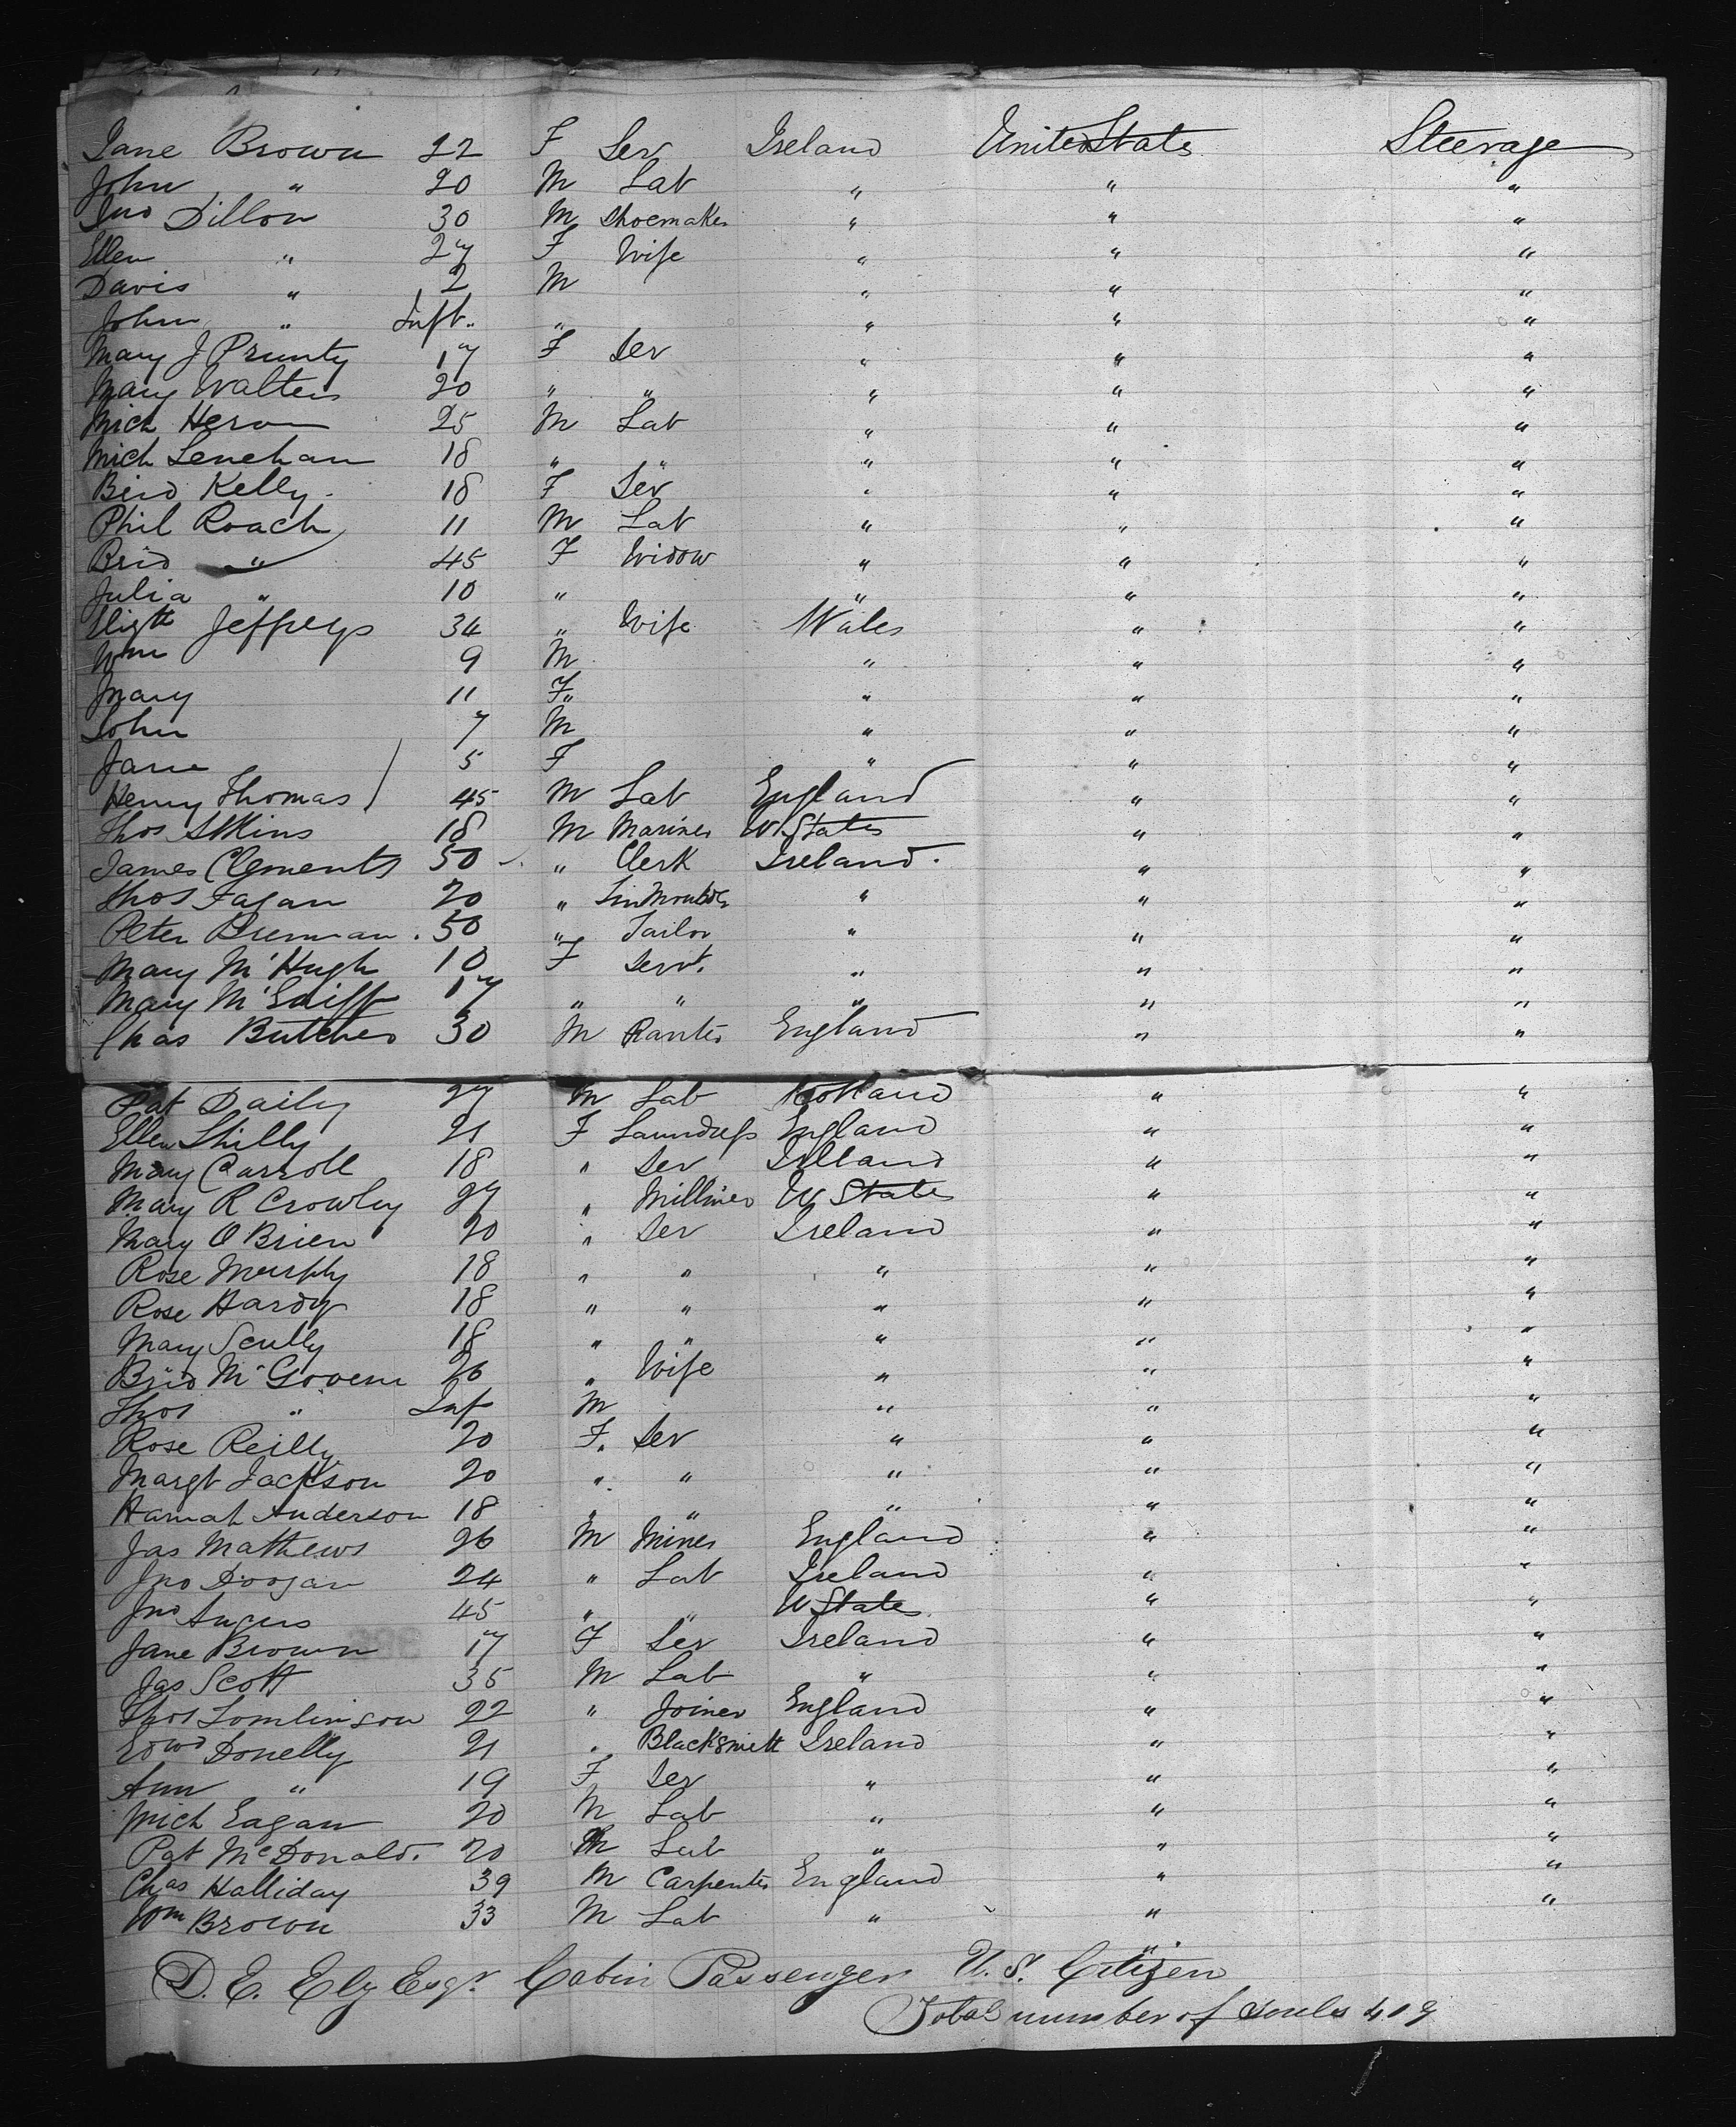 Jane Brown 22 F Ser Ireland United States Steerage
John " 20 M Lab " " "
Jno Dillon 30 M Shoemaker " " "
Ellen " 27 F Wife " " "
Davis " 2 M " " "
John " Inft. " " " "
Mary J Prunty 17 F Ser " " "
Mary Walters 20 " " " " "
Mich Heron 25 M Lab " " "
Mich Lenehan 18 " " " " "
Brid Kelly 18 F Ser " " "
Phil Roach 11 M Lab " " "
Brid " 45 F Widow " " "
Julia " 10 " " " "
Eligth Jeffreys 34 " Wife Wales " "
Wm 9 M " " "
Mary 11 F " " "
John 7 M " " "
Jane 5 F " " "
Henry Thomas 45 M Lab England " "
Thos Atkins 18 M Mariner U States " "
James Clements 50 " Clerk Ireland " "
Thos Fagan 20 " " " "
Peter Brennan 50 " Tailor " " "
Mary M'Hugh 10 F Servt. " " "
Mary 17 " " " " "
Chas Butcher 30 M England " "
Pat Daily 27 M Lab Scotland " "
Ellen Shilly 21 F Laundress England " "
Mary Carroll 18 " Ser Ireland " "
Mary R Crowley 27 " Milliner U States " "
Mary O'Brien 20 " Ser Ireland " "
Rose Murphy 18 " " " " "
Rose Hardy 18 " " " " "
Mary Scully 18 " " " " "
Brid McGovern 26 " Wife " " "
Thos " Inf M " " "
Rose Reilly 20 F. Ser " " "
Margt Jackson 20 " " " " "
Hannah Anderson 18 " " " " "
Jas Mathews 26 M Miner England " "
Jno Doogan 24 " Lab Ireland " "
Jno Angus 45 " " U States " "
Jane Brown 17 F Ser Ireland " "
Jas Scott 35 M Lab " " "
Thos Tomlinson 22 " Joiner England " "
Edwd Donelly 21 " Blacksmith Ireland " "
Ann " 19 F Ser " " "
Mich Eagan 20 M Lab " " "
Pat McDonald. 20 M Lab " " "
Chas Halliday 39 M Carpenter England " "
Wm Brown 33 M Lab " " "
D. E. Ely Esqr. Cabin Passenger U.S. Citizen
Total number of souls 419